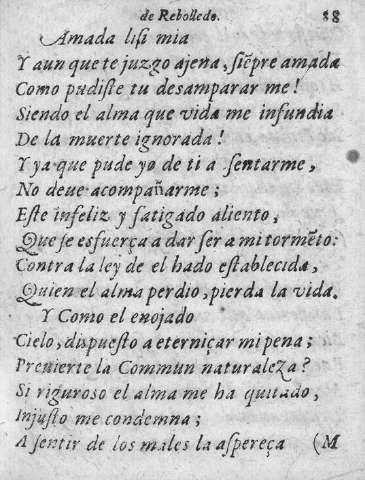 de Rebolledo. 88
Amada lisi mia
Y aun que te juzgo ajena, siẽpre amada
Como pudiste tu desamparar me!
Siendo el alma que vida me infundia
De la muerte ignorada!
Y ya que pude yo de ti a sentarme,
No deue acompañarme;
Este infeliz y fatigado aliento,
Que se esfuerça a dar ser a mi tormẽto:
Contra la ley de el hado establecida,
Quien el alma perdio, pierda la vida.
Y Como el enojado
Cielo, dispuesto a eterniçar mi pena;
Preuierte la Commun naturaleza?
Si riguroso el alma me ha quitado,
Injusto me condemna;
A sentir de los males la aspereça (M